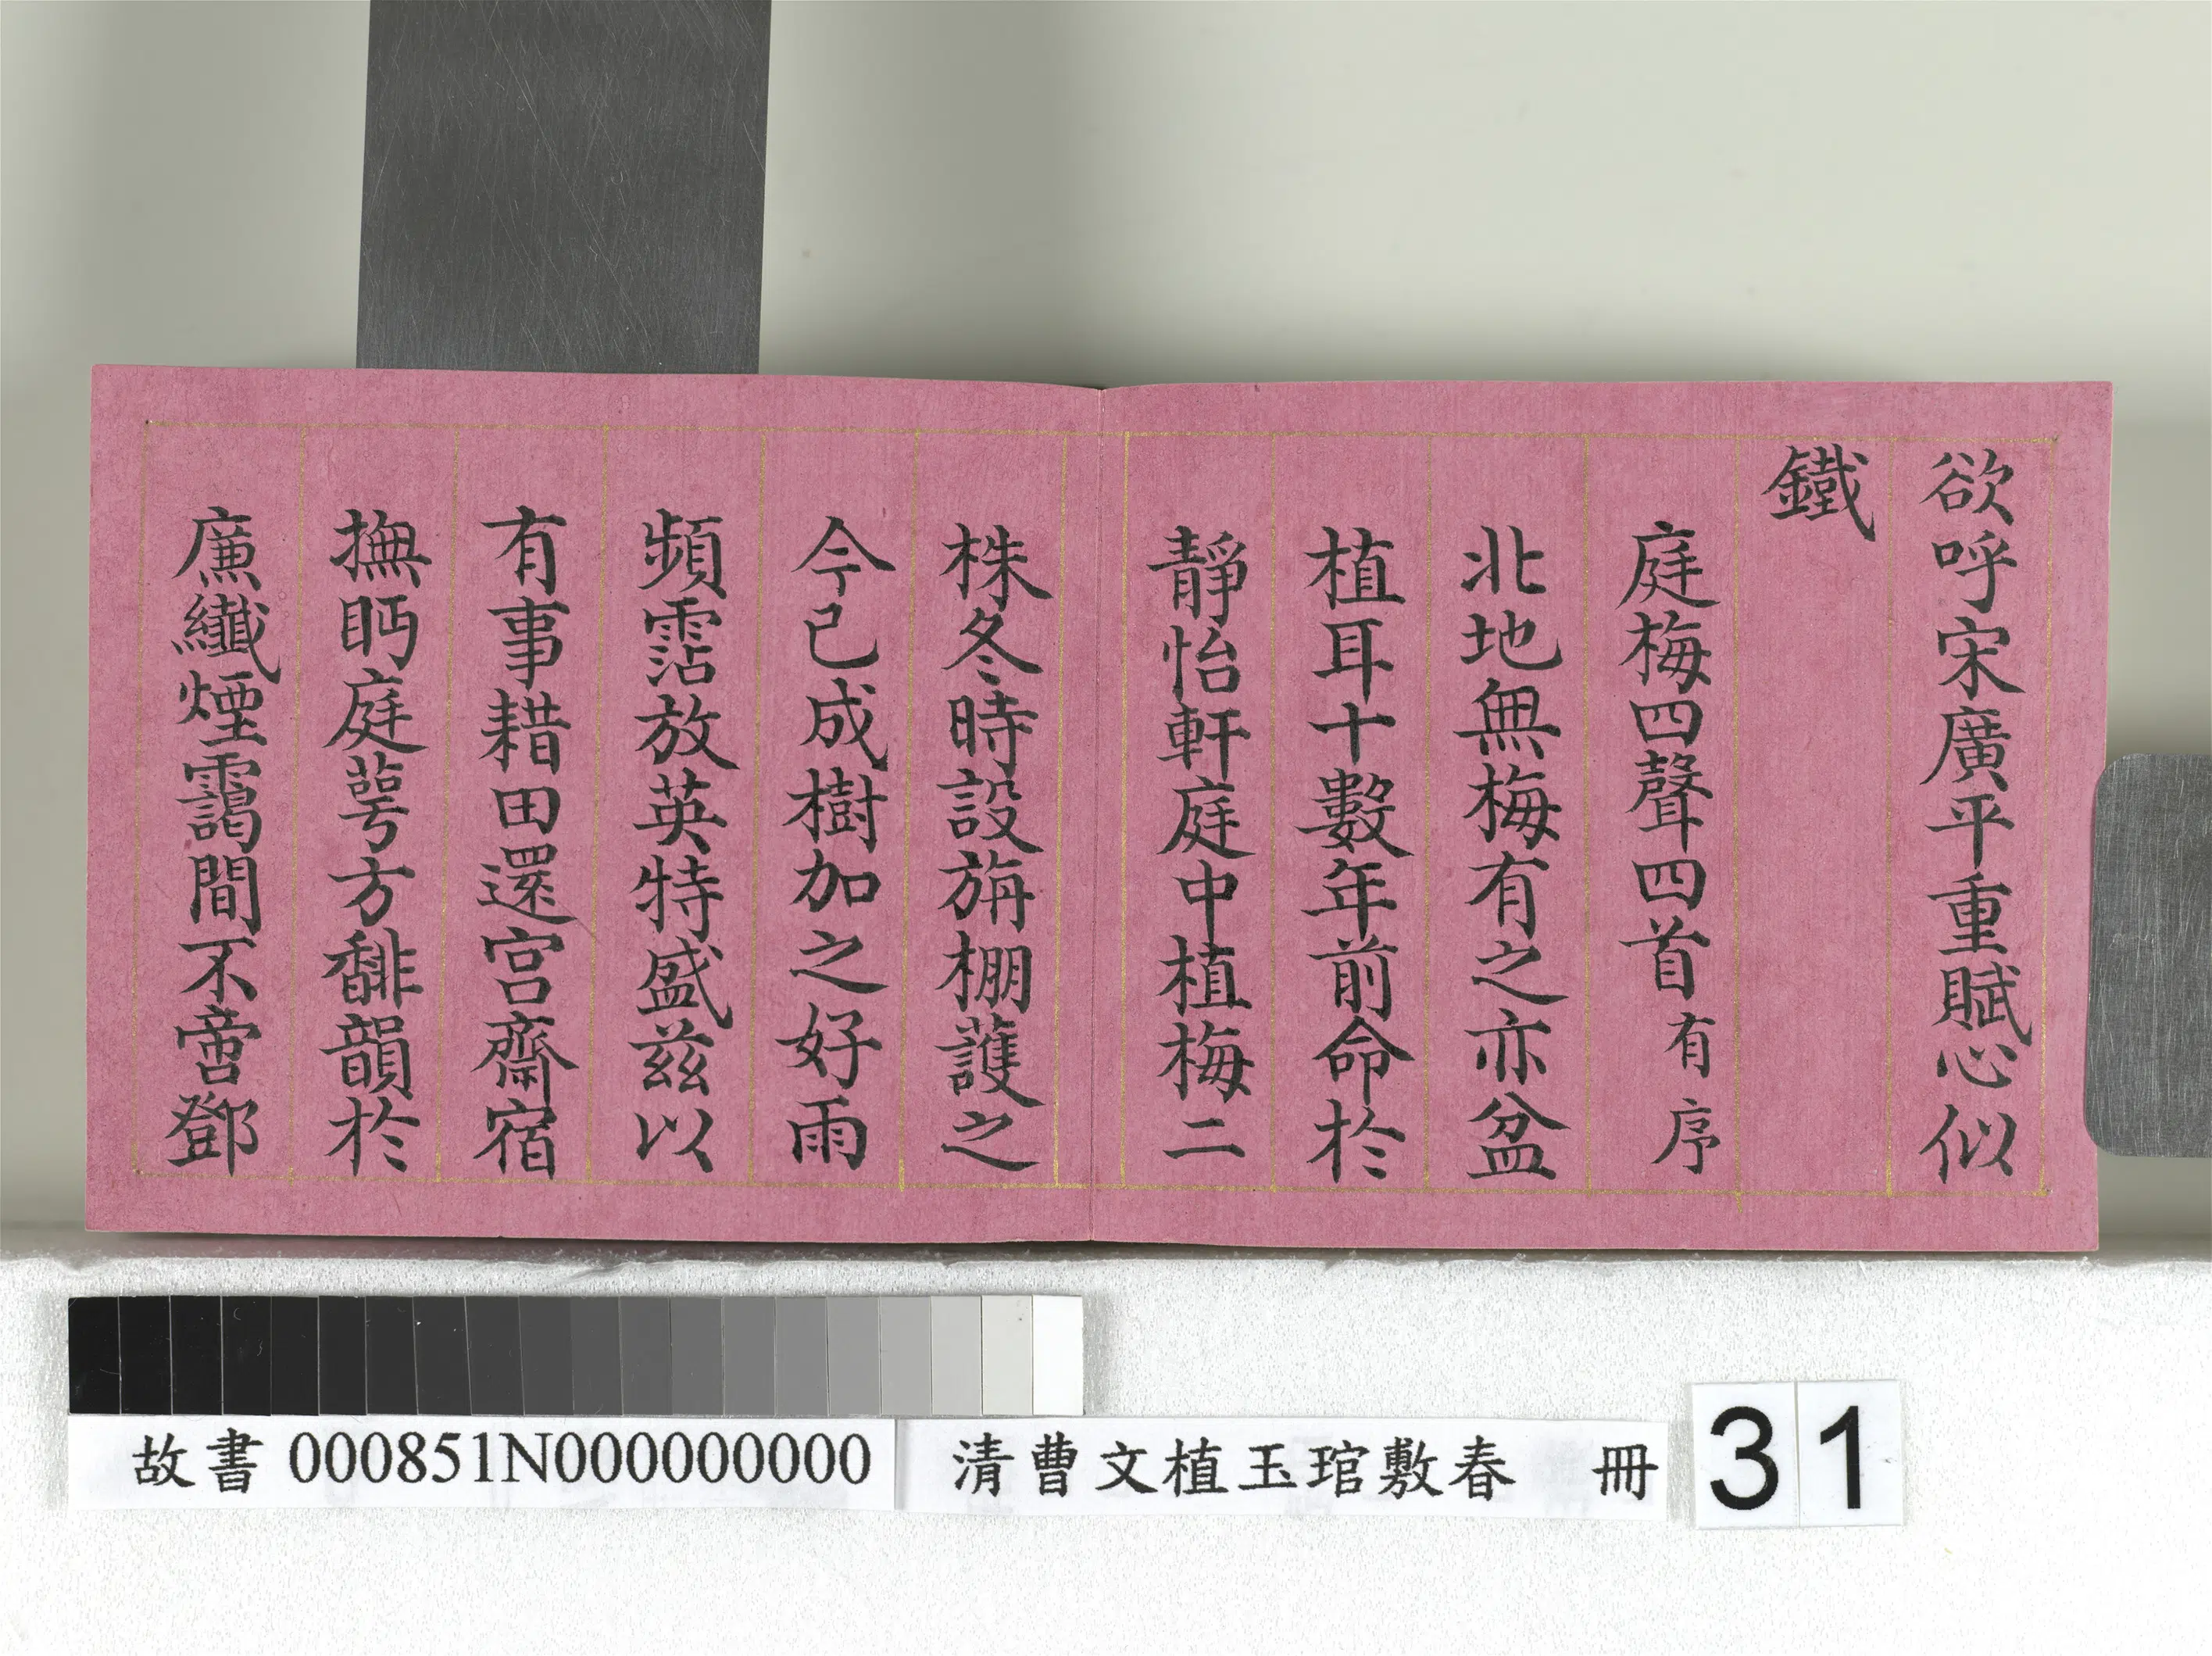 欲呼宋廣平重賦心似
鐵
庭梅四聲四首有序
北地無梅有之亦盆
植耳十數年前命於
靜怡軒庭中植梅二
株冬時設旃棚護之
今已成樹加之好雨
頻霑放英特盛茲以
有事耤田還宮齋宿
撫眄庭蕚方馡韻於
廉纖煙靄間不啻鄧
故書 000851N000000000
清曹文植玉琯敷春 冊
31